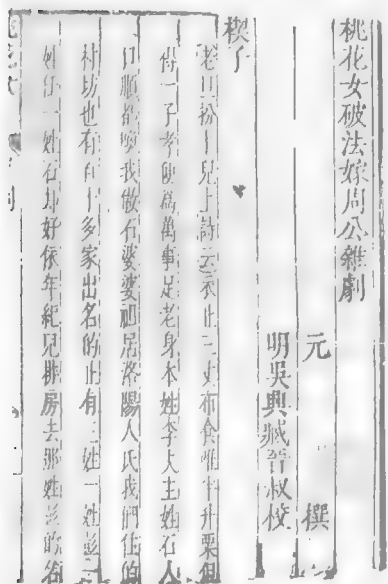 桃花女破法嫁周公雜劇
元　撰
明吳興臧晉叔校
楔子
老旦扮卜兒上詩云衣止三丈布食唯半升粟但
得一子孝便爲萬事足老身本姓李夫主姓石人
口順都喚我做石婆婆祖居洛陽人氏我們住的
村坊也有百十多家出名的止有三姓一姓彭一
姓任一姓石却好依年紀兒排房去那姓彭的